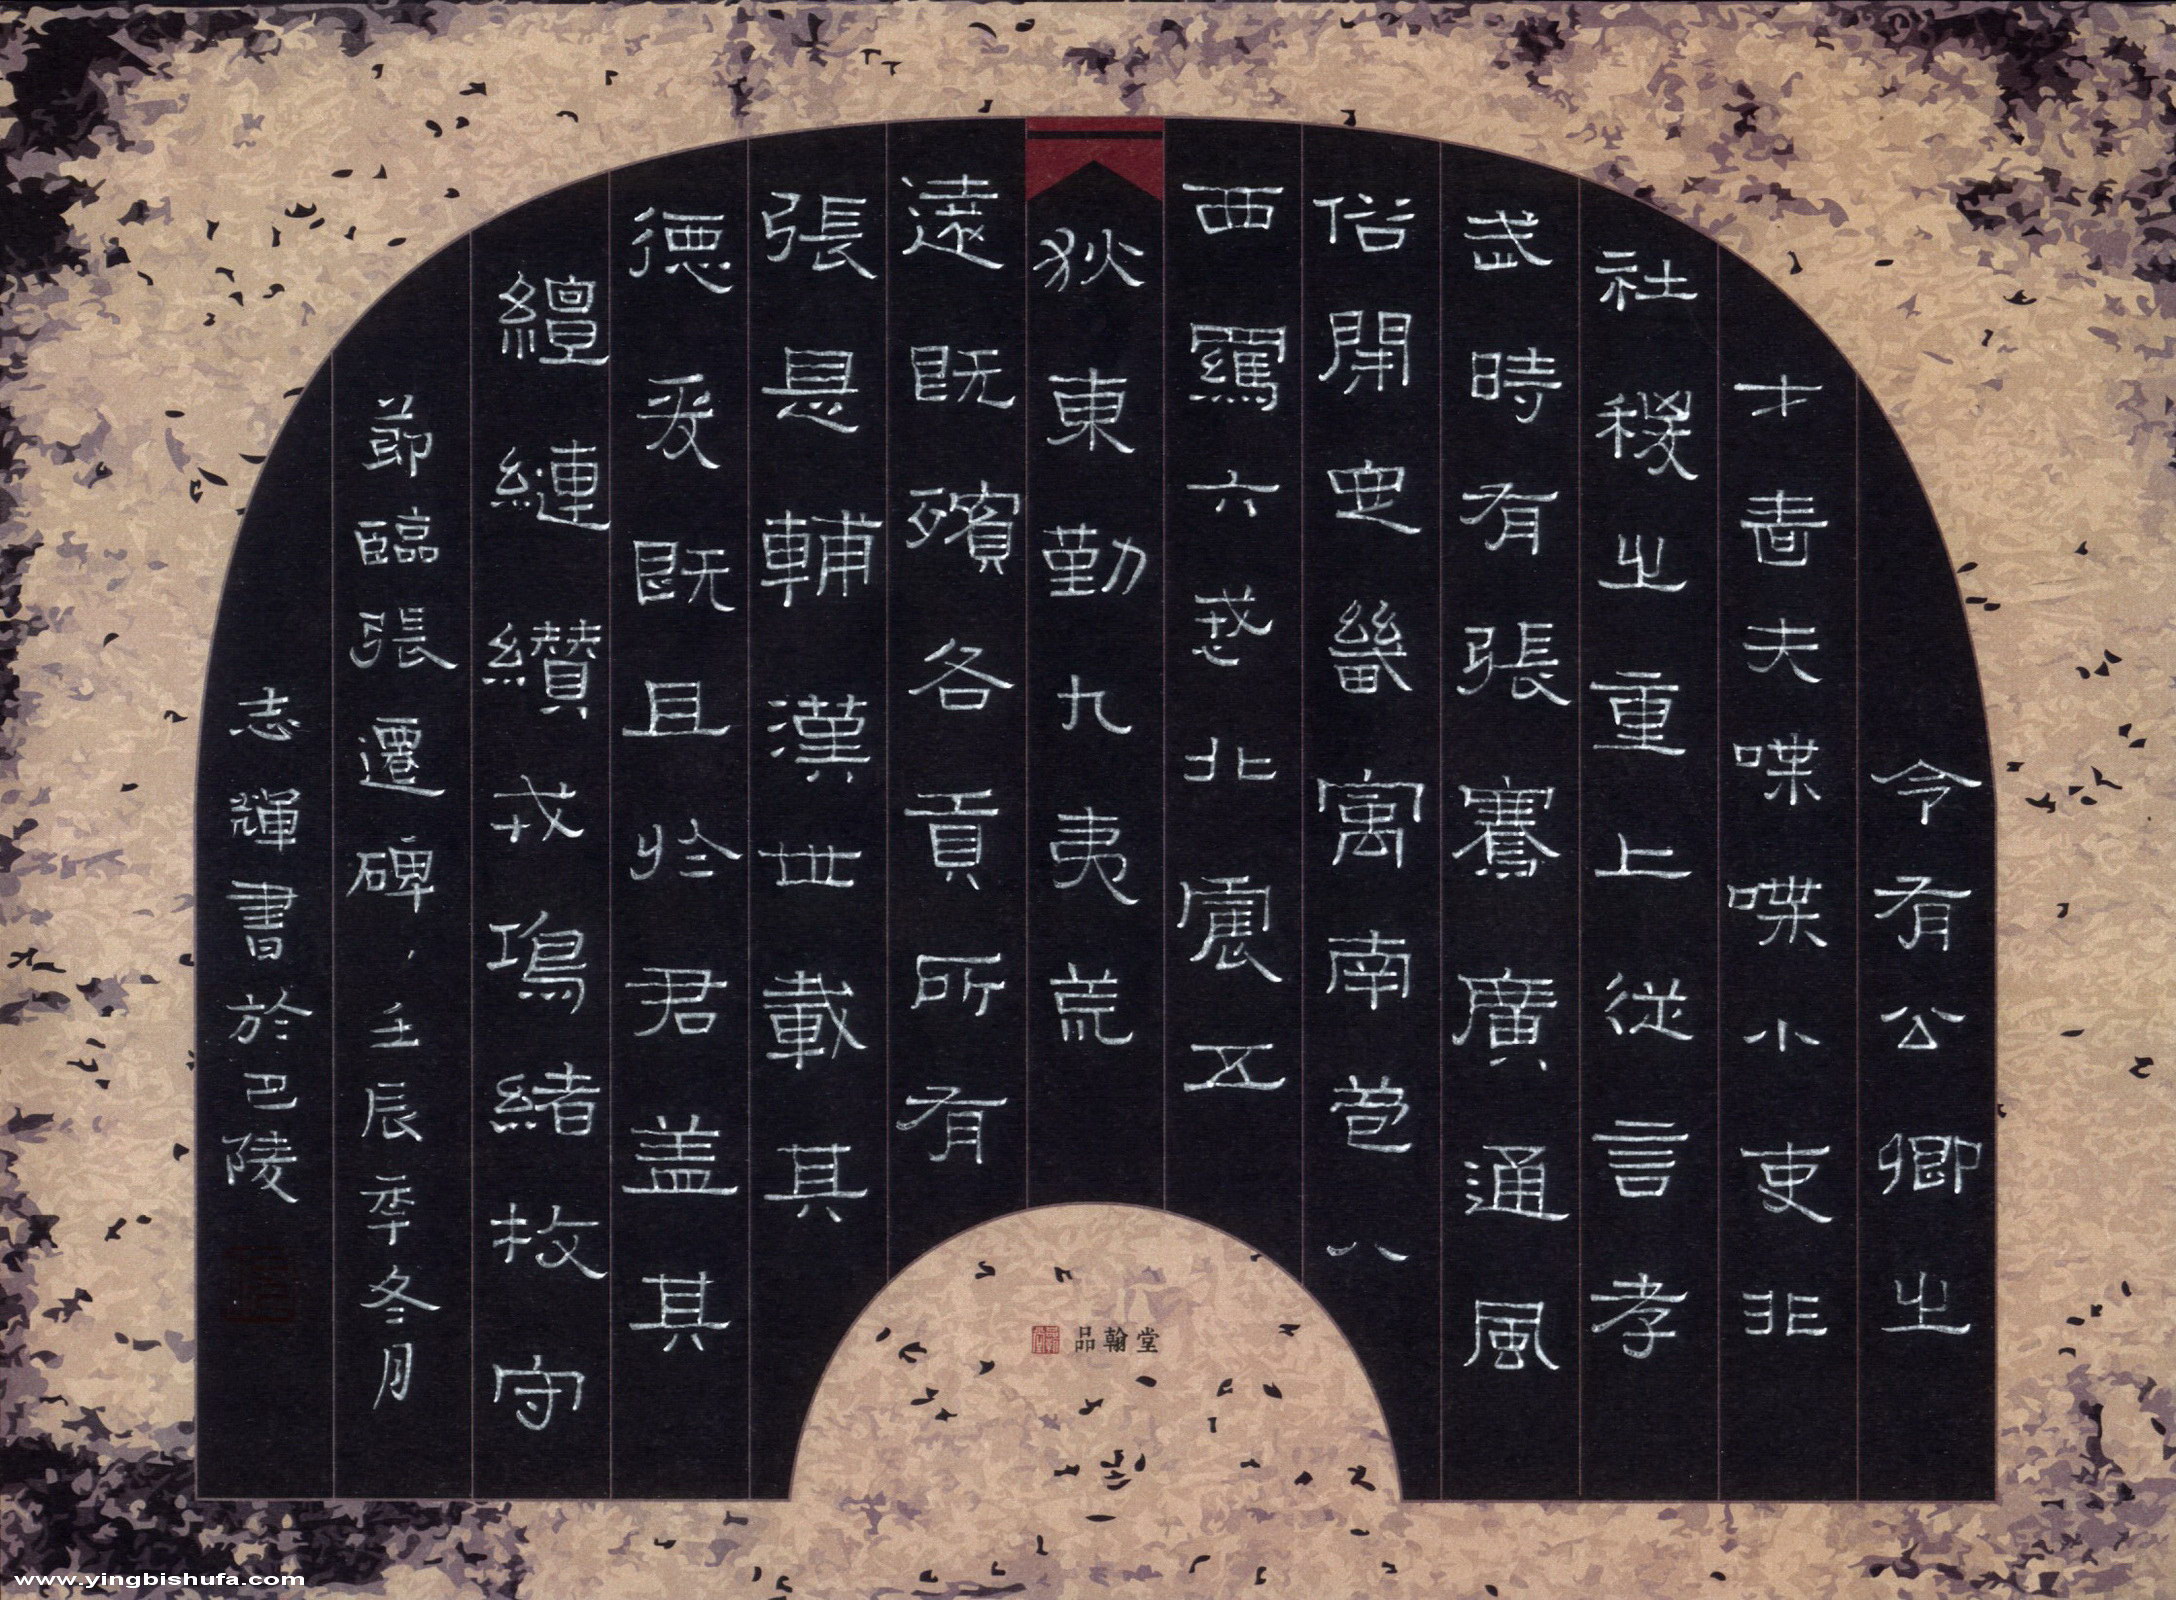 令有公卿之
才啬夫喋喋小吏非
社稷之重上從言孝
武時有張騫廣通風
俗開定畿寓南苞八
西羈六戎北震五
狄東勤九夷荒
遠既殯各貢所有
張是輔漢世載其
德爰既且於君蓋其
繵縺纘戎鴻緒牧守
節臨張遷碑、壬辰年冬月
志輝書於巴陵
品翰堂
www.yingbishufa.com